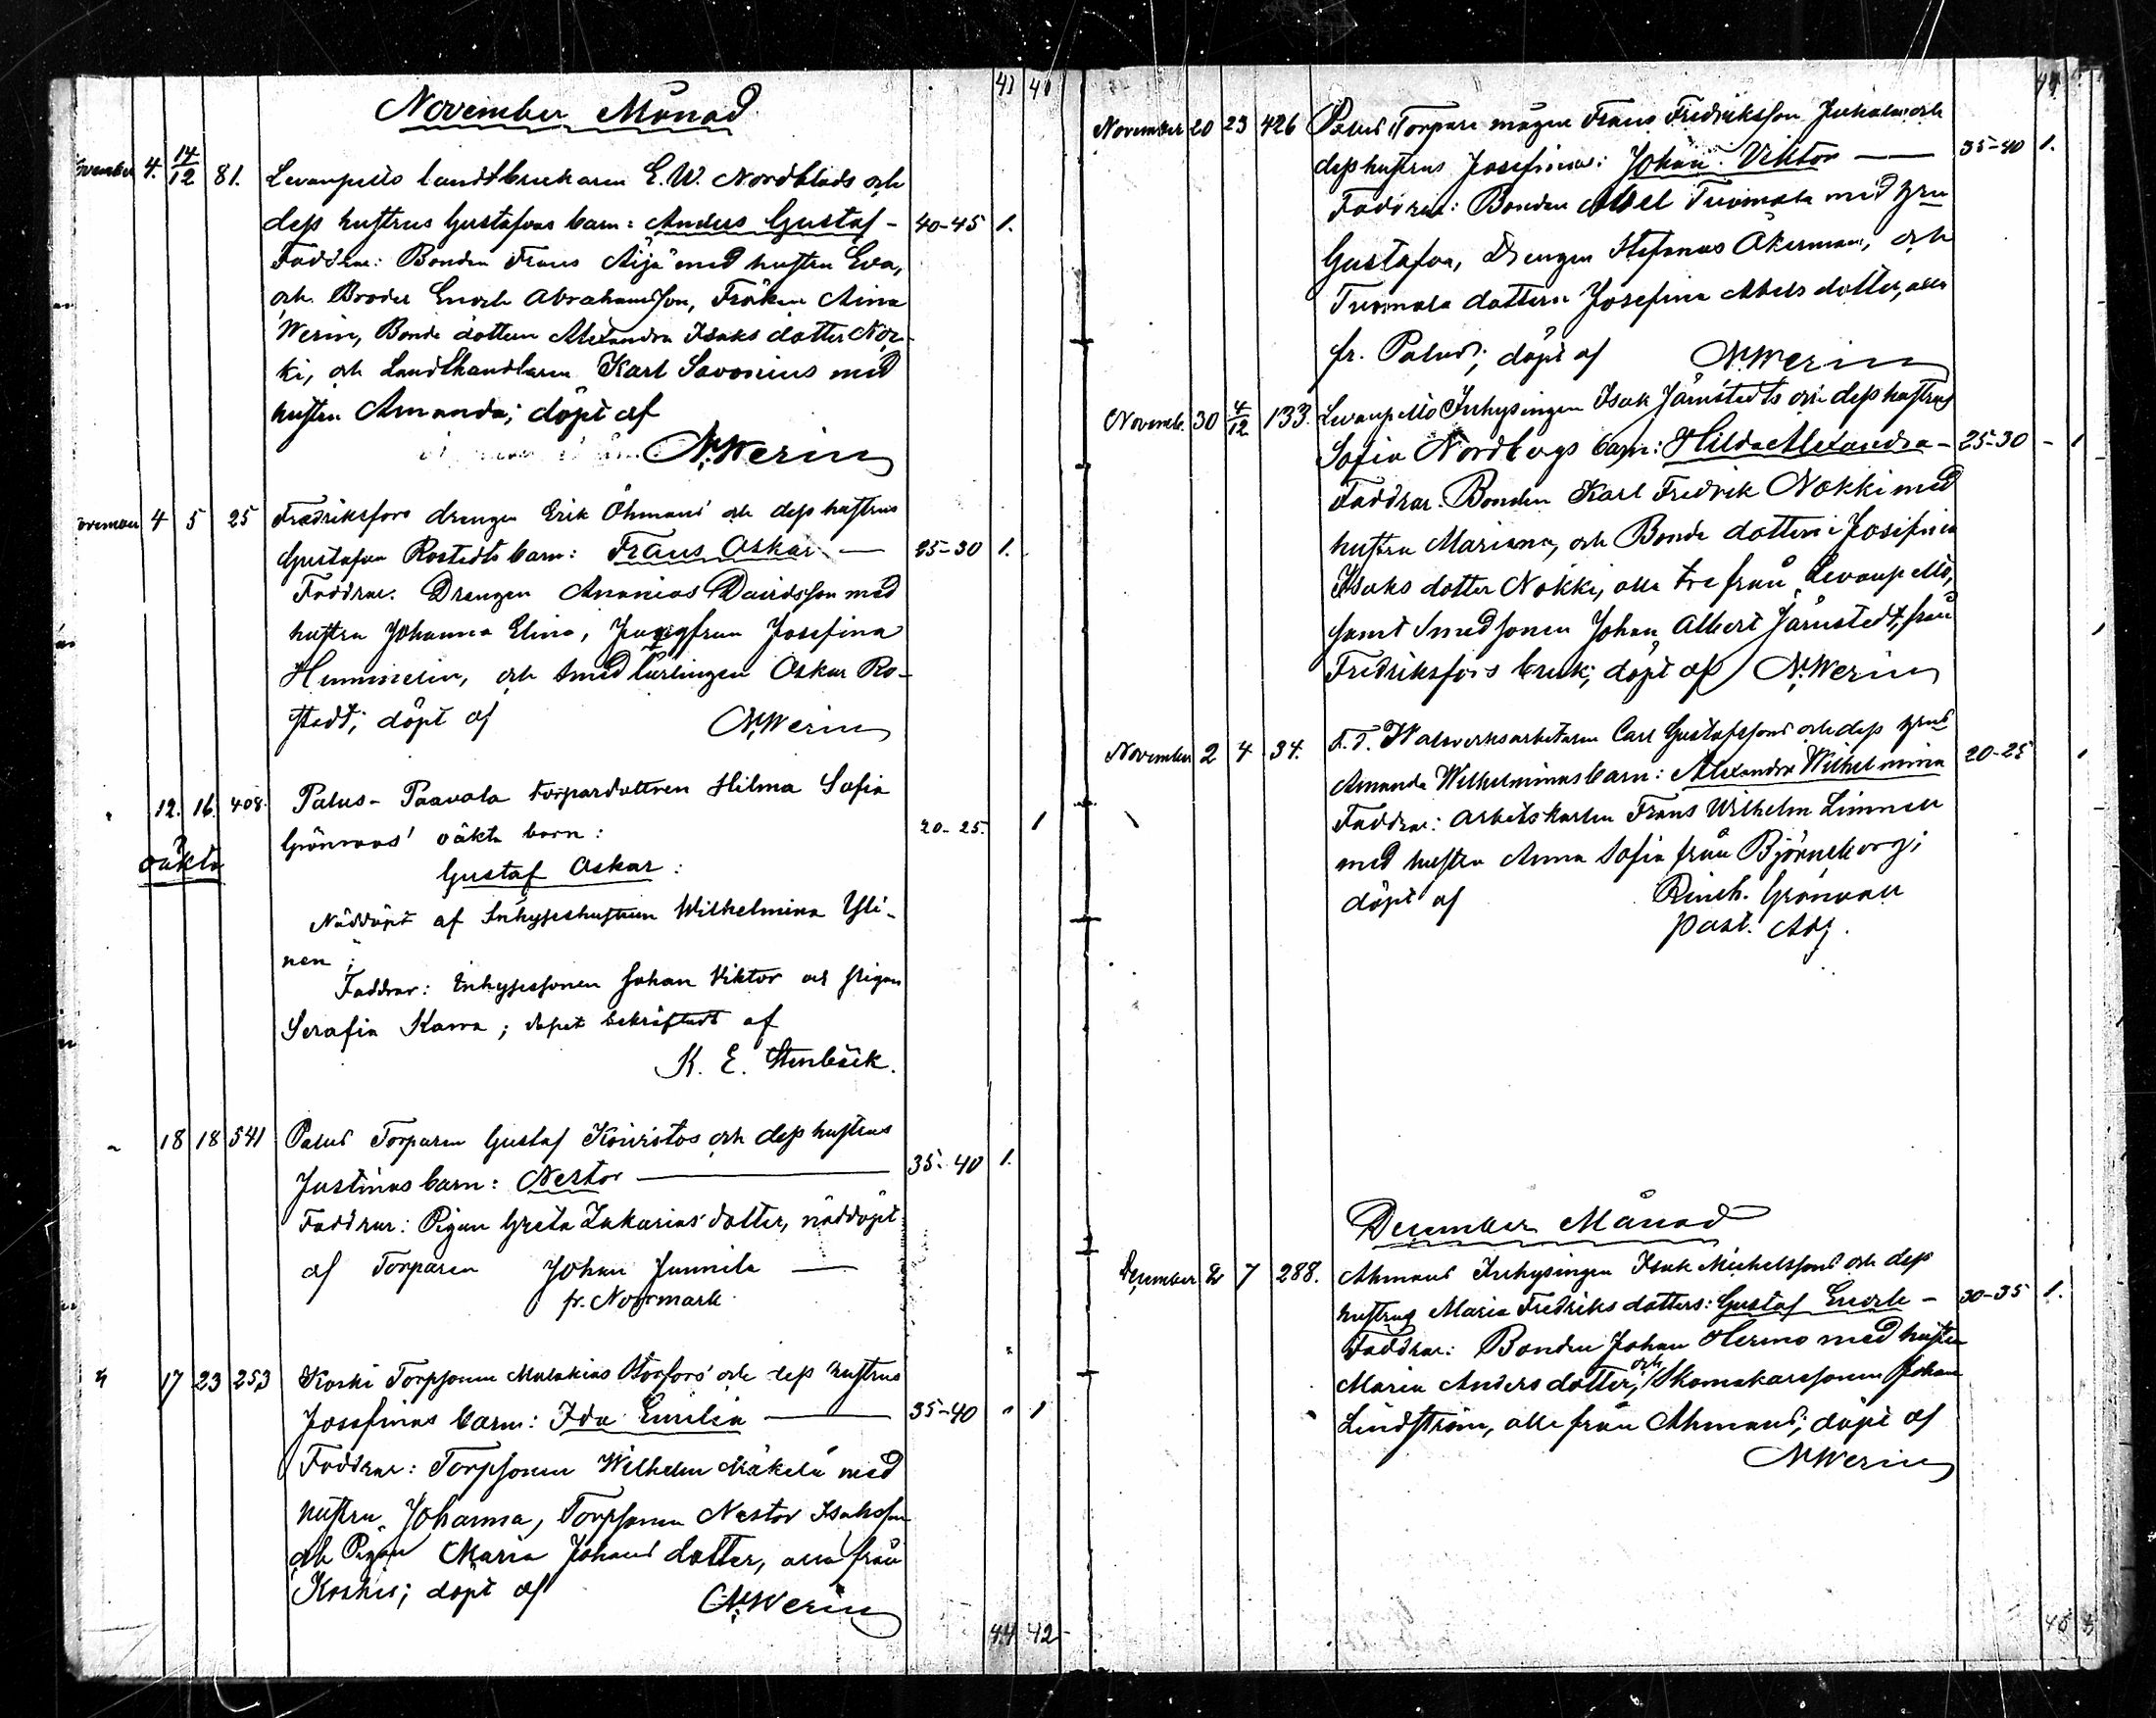 41 41
November Månad
November 4. 14/12 81. Levanpelto landtbrukaren E. W. Nordblads och
dess hustrus Gustafvas barn: Anders Gustaf - 40-45 1.
Faddrar: Bonden Frans Äijä med hustru Eva,
och Broder Enoch Abrahamsson, Fröken Aina
Werin, Bonde dottern Alexandra Isaks dotter Nok-
ki, och Landthandlaren Karl Savonius med
hustru Amanda; döpt af
N. Werin
November 4 5 25 Fredriksfors drengen Erik Öhmans och dess hustrus
Gustafva Rostedts barn: Frans Oskar — 25-30 1.
Faddrar. Drengen Ananias Davidsson med
hustru Johanna Elina, Jungfrun Josefina
Hemminelin, och Smed lärlingen Oskar Ro-
stedt; döpt af N. Werin
" 12. 16. 408. Palus - Paavola torpardottren Hilma Sofia
Grönroos' oäkta barn: 20-25. 1
oäkta
Gustaf Oskar:
Nöddöpt af Inhyseshustrun Wilhelmina Yli-
nen;
Faddrar: Inhysessonen Johan Viktor och pigan
Serafia Karra; dopet bekräftadt af
K. E. Stenbäck.
" 18 18 541 Palus Torparen Gustaf Koivistos och dess hustrus
Justinas barn: Nestor — 35-40 1.
Faddrar: Pigan Greta Zakarias dotter, nöddöpt
af Torparen Johan Junnila —
fr. Norrmark
" 17 23 253 Koski Torpsonen Malakias Storfors och dess hustrus
Josefinas barn: Ida Emilia — 35-40 " 1
Faddrar: Torpsonen Wilhelm Mäkelä med
hustru Johanna, Torpsonen Nestor Isaksson
och Pigan Maria Johans dotter, alla från
Koskis; döpt af N. Werin
44 42
44
November 20 23 426 Palus Torpare mågen Frans Fredriksson och
dess hustrus Josefinas: Johan Viktor — 35-40 1.
Faddrar: Bonden Abel Tuomola med hru
Gustafva, Drengen Stefanus Åkerman, och
Tuomola dottern Josefina Abels dotter, alla
fr. Palus; döpt af N. Werin
Novemb. 30 4/12 133. Levanpelto Inhysingen Isak Järnstedts och dess hustrus
Sofia Nordbergs barn: Hilda Alexandra - 25-30 - 1
Faddrar. Bonden Karl Fredrik Nokki med
hustru Mariana, och Bonde dottern Josefina
Isaks dotter Nokki, alla tre från Levanpelto,
samt Smedsonen Johan Albert Järnstedt, från
Fredriksfors bruk; döpt af N. Werin
November 2 4 34. F. d. Walsverksarbetaren Carl Gustafssons och dess hrus
Amanda Wilhelminas barn: Alexandra Wilhelmina 20-25 1
Faddrar: Arbetskarlen Frans Wilhelm Linnell
med hustru Anna Sofia från Björneborg;
döpt af Rinh. Grönvall
past. Adj.
December Månad
December 2 7 288. Ahmaus Inhysingen Isak Michelssons och dess
hustrus Maria Fredriks dotters: Gustaf Enoch - 30-35 1.
Faddrar: Bonden Johan Hermo med hustru
Maria Anders dotter, och Skomakarssonen Johan
Lindström, alla från Ahmaus; döpt af
N. Werin